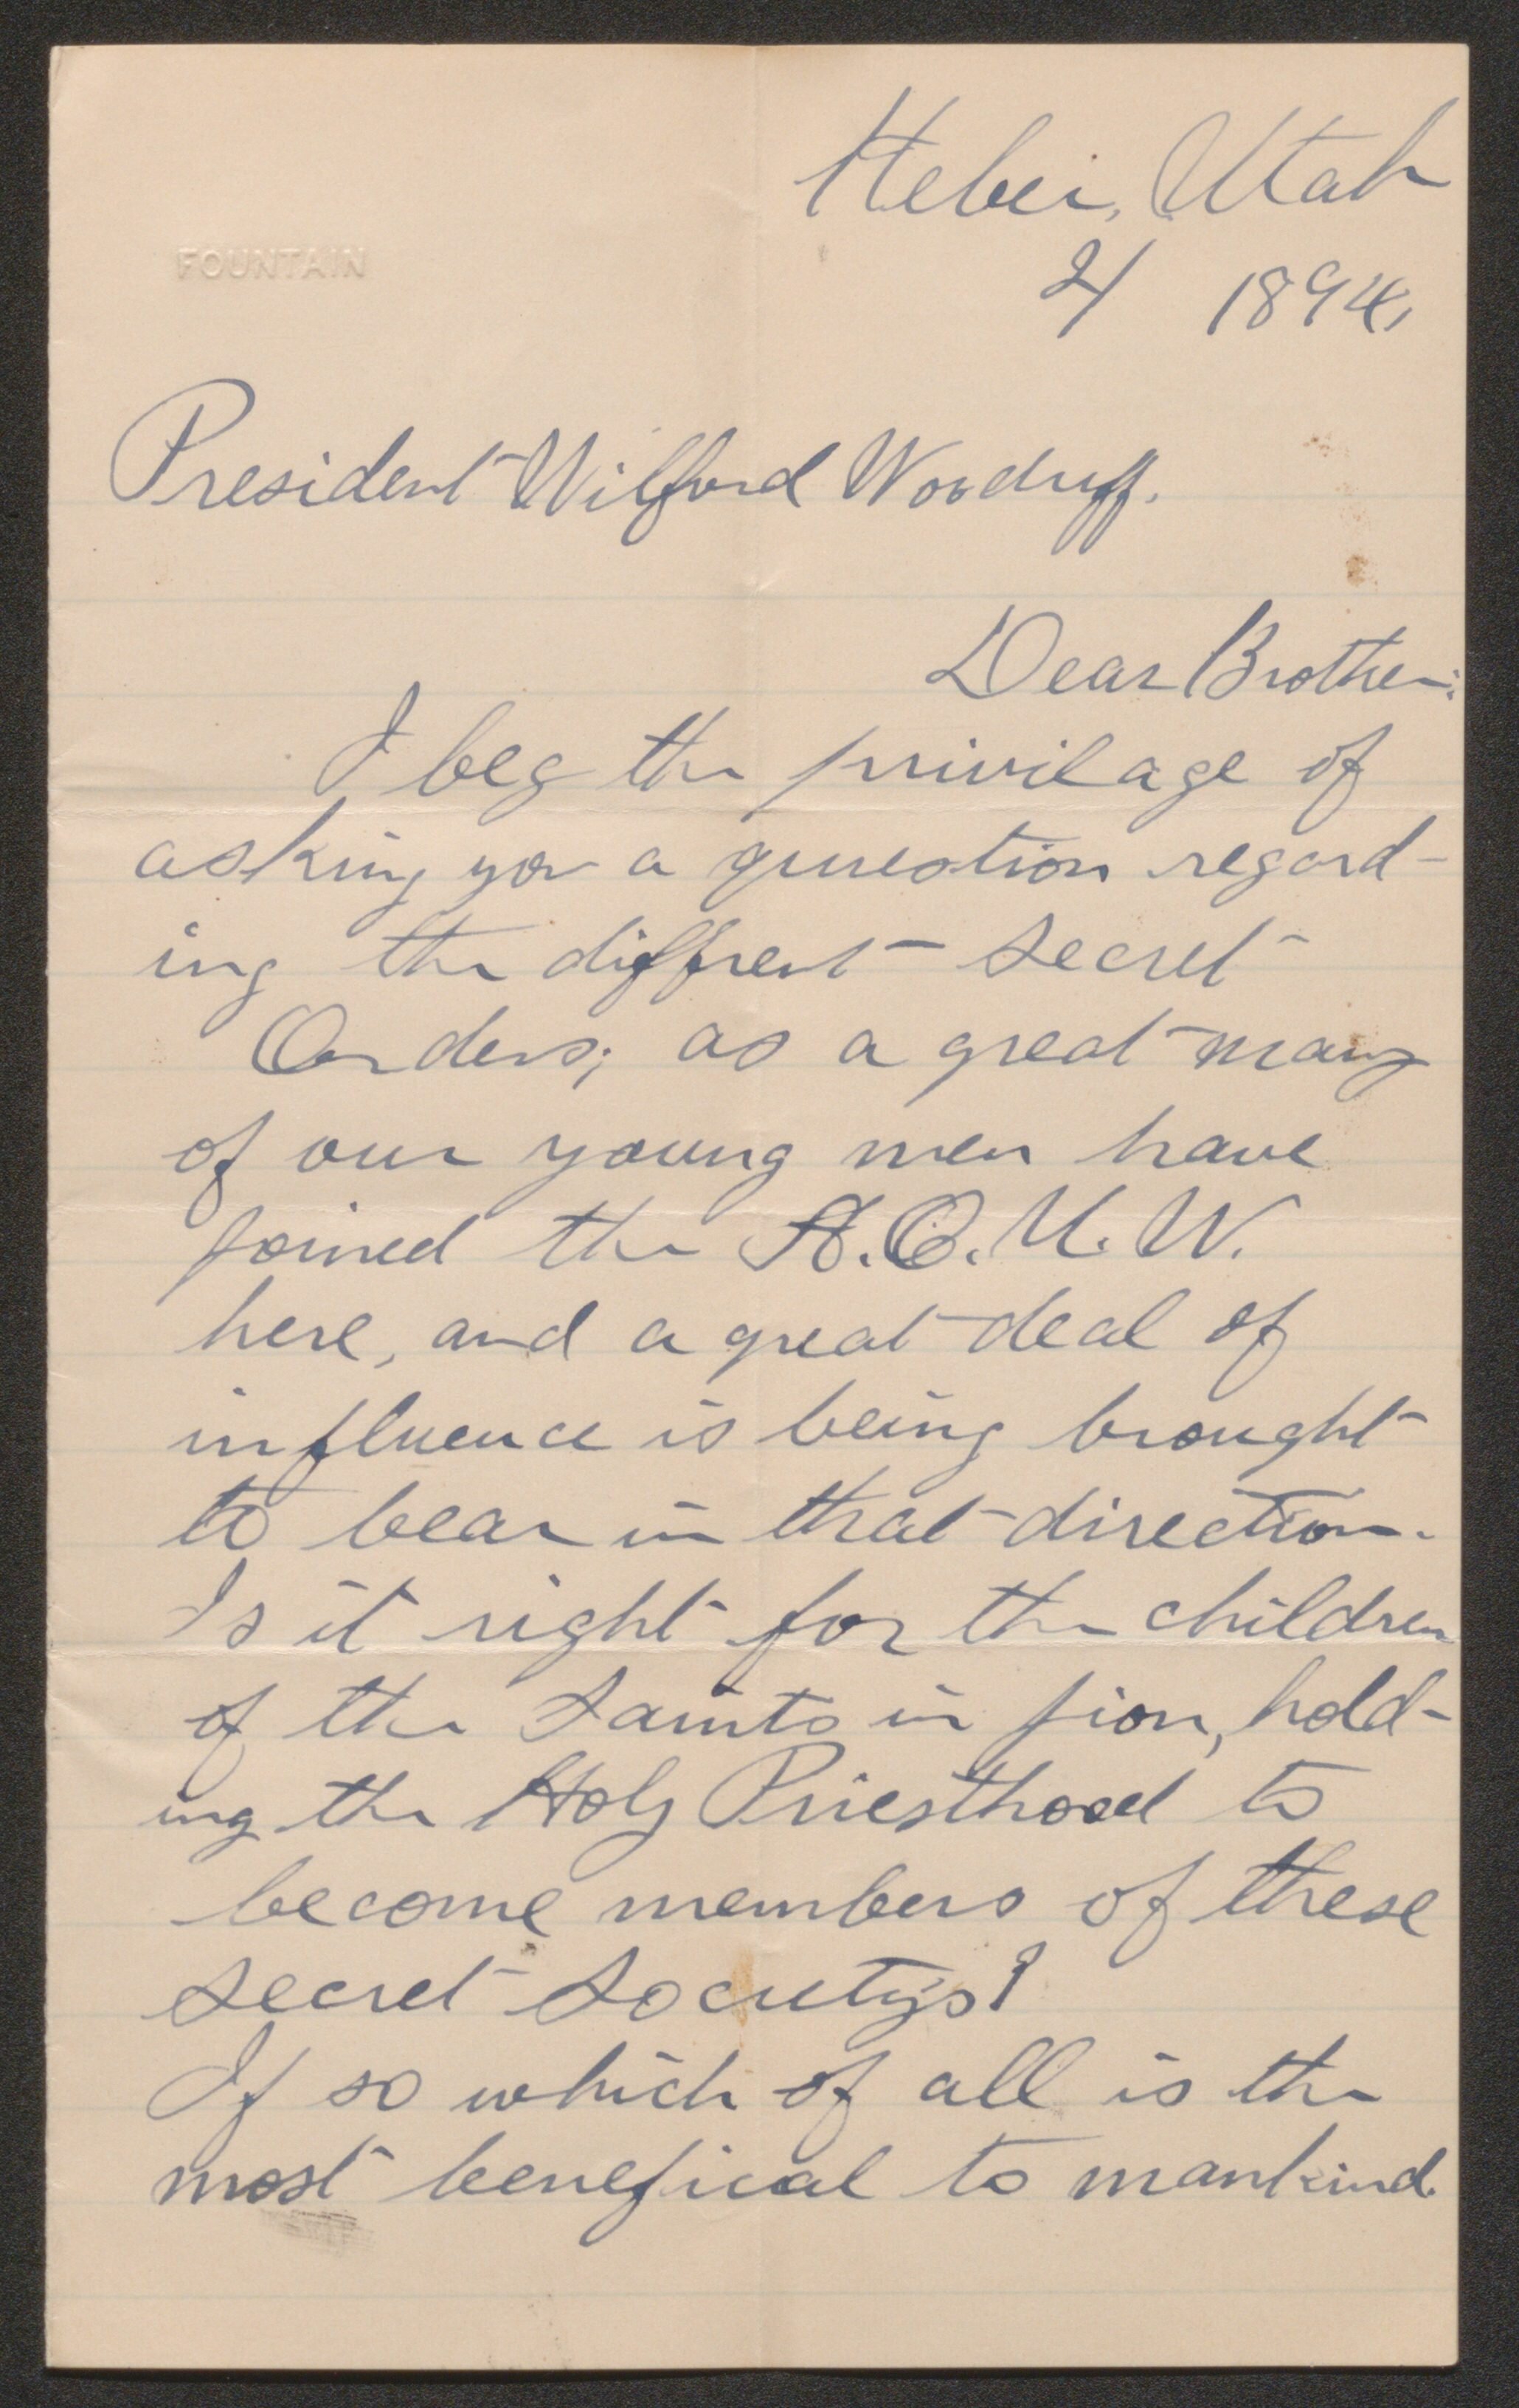 Heber, Utah
FOUNTAIN
2/ 1894,
President Wilford Woodruff.
Dear Brother:
I beg the privilage of
asking you a question regard-
ing the diffrent secret
Orders; as a great many
of our young men have
joined the A.O.U.W.
here, and a great deal of
influence is being brought
to bear in that direction.
Is it right for the children
of the Saints in zion, hold-
ing the Holy Priesthood to
become members of these
secret Societys?
If so which of all is the
most benefical to mankind.